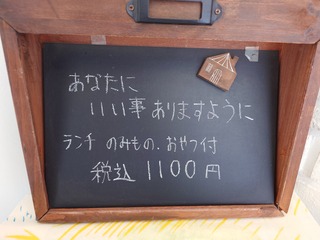 あなたに
いい事ありますように
ランチ のみもの.おやつ付
税込 1100円